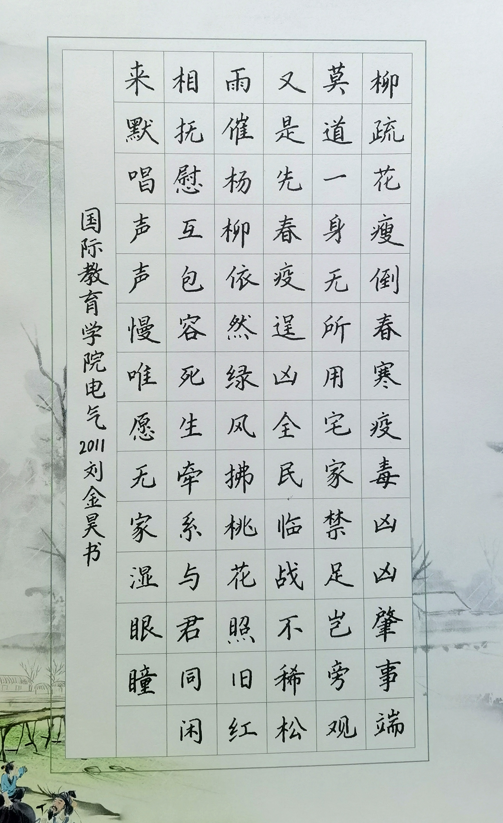 柳疏花瘦倒春寒疫毒凶凶肇事端
莫道一身无所用宅家禁足岂旁观
又是先春疫逞凶全民临战不稀松
雨催杨柳依然绿风拂桃花照旧红
相抚慰互包容死生牵系与君同闲
来默唱声声慢唯愿无家湿眼瞳
国际教育学院电气2011刘金昊书